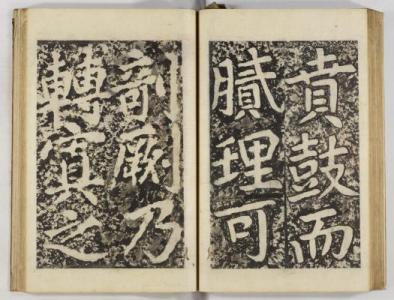 賁鼓而
膩理可
剞劂乃
轉寘之